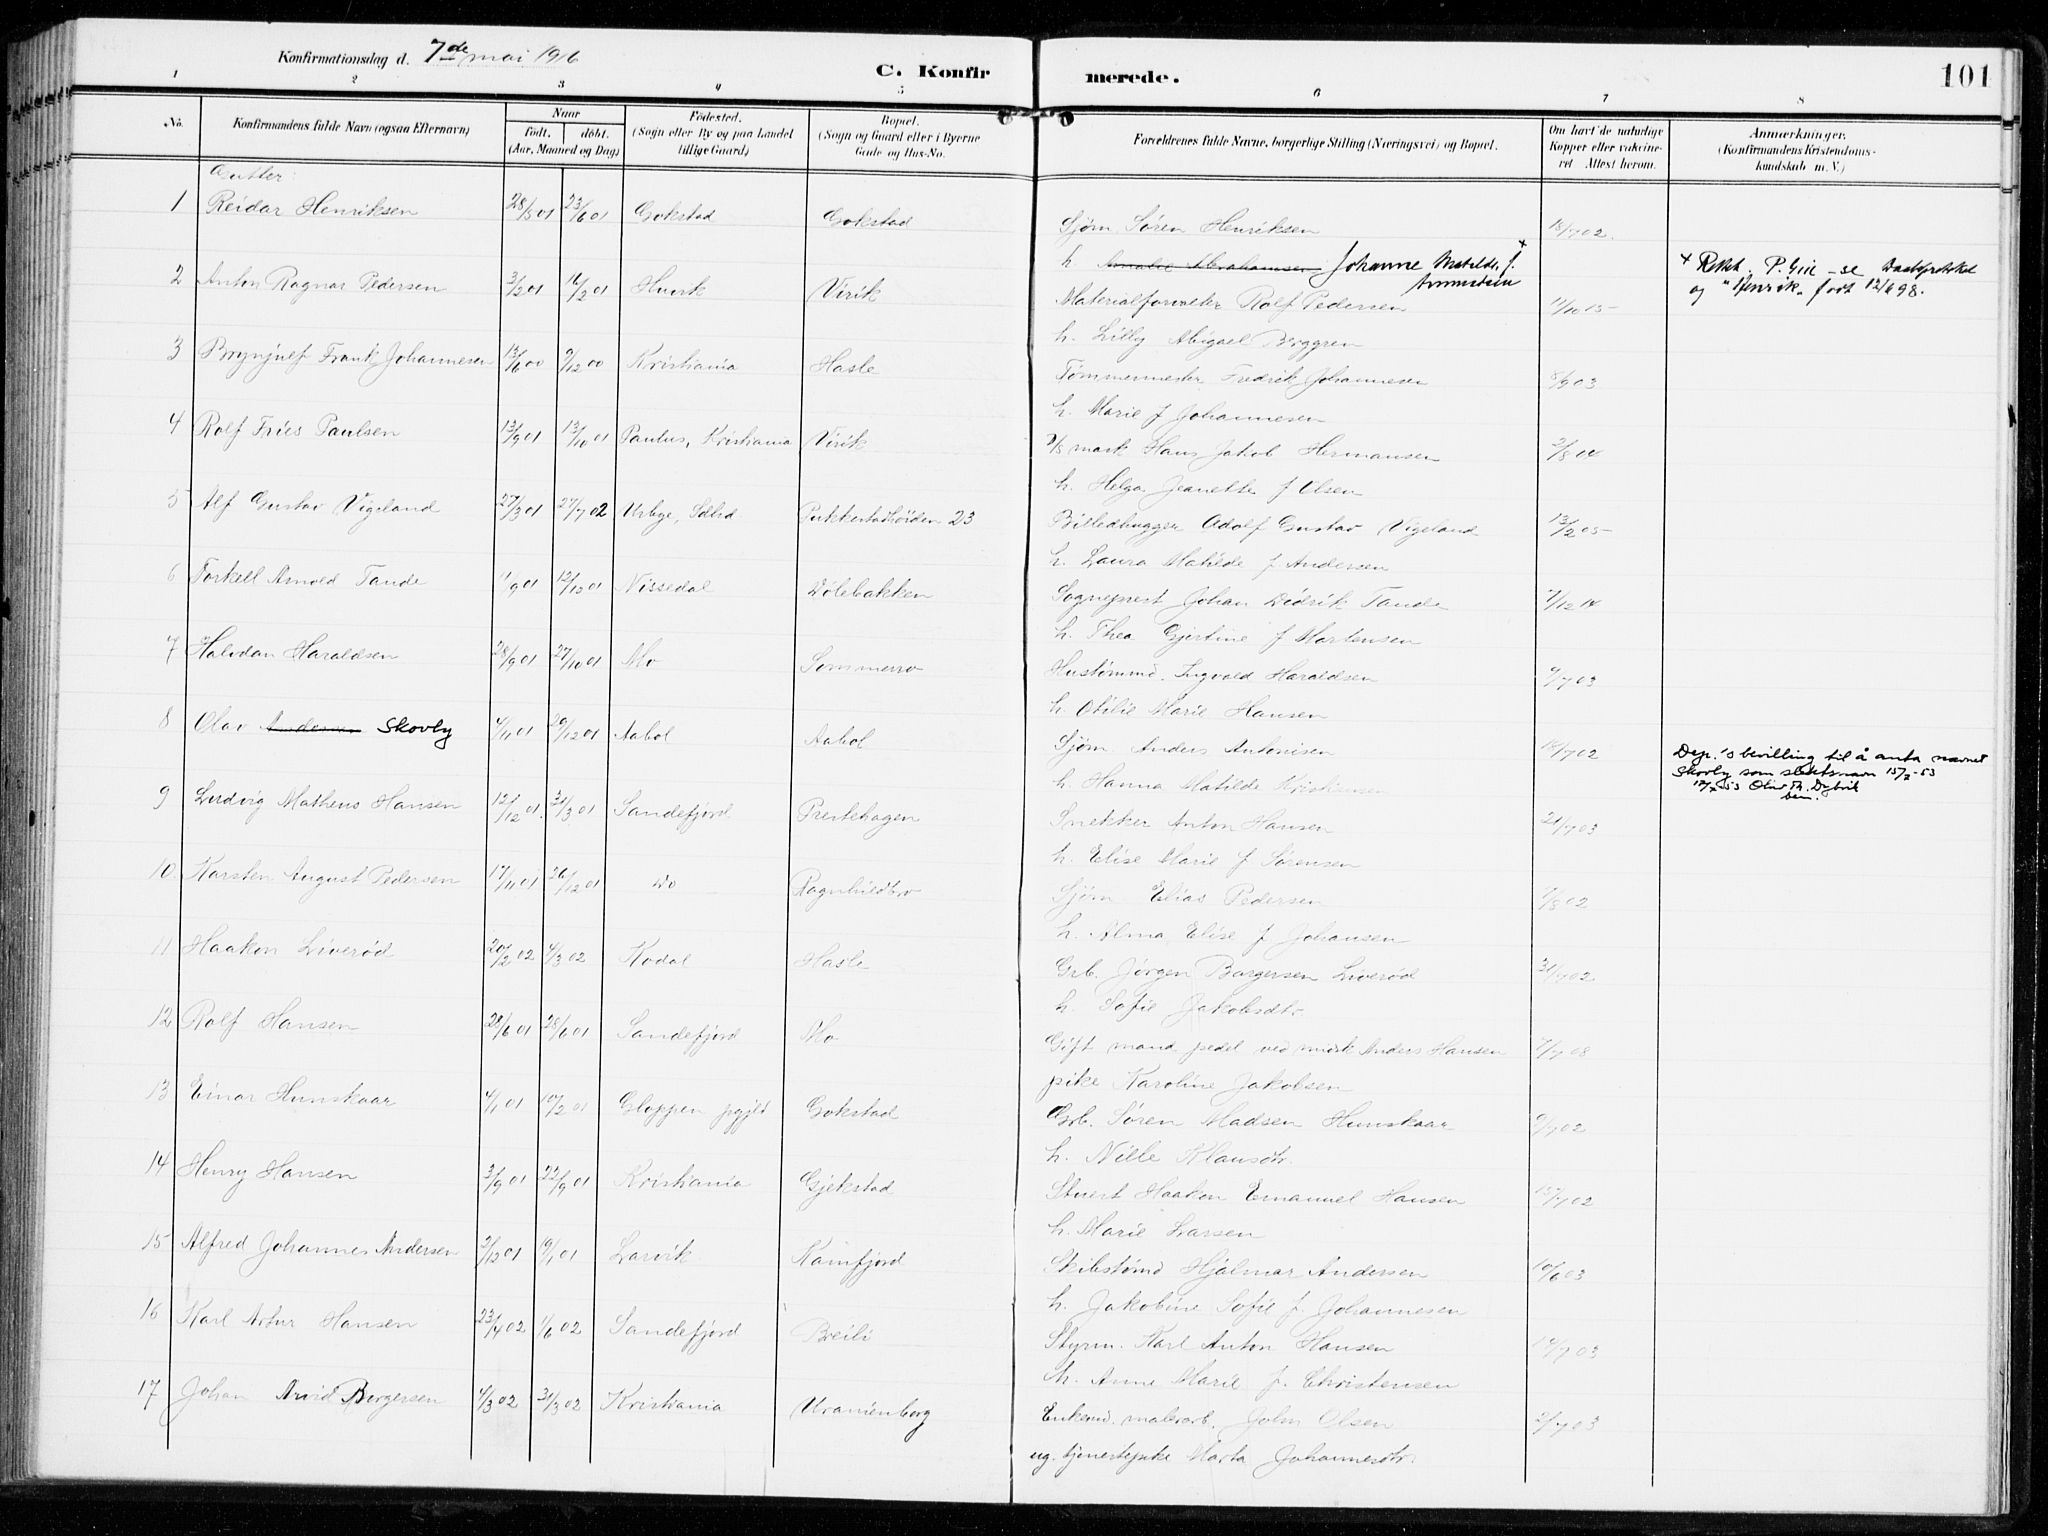 Konfirmationsdag d. 7de mai 1916
C. Konfirmerede.
101
1 2 3 4 5 6 7 8
No.
Konfirmandens fulde Navn (ogsaa Efternavn)
Naar
født. døbt.
(Aar, Maaned og Dag)
Fødested.
(Sogn eller By og paa Landet
tillige Gaard)
Bopæl.
(Sogn og Gaard eller i Byerne
Gade og Hus-No.
Forældrenes fulde Navne, borgerlige Stilling (Næringsvei) og Bopæl.
Om havt de naturlige
Kopper eller vakcine-
ret Attest herom.
Anmærkninger.
(Konfirmandens Kristendoms-
kundskab m. V.)
Gutter:
1 Reidar Henriksen 28/5 01 23/6 01 Gokstad Gokstad Sjøm. Søren Henriksen 18/7 02
h. Amalie Abrahamsen Johanne Matilde f. x
2 Anton Ragnar Pedersen 3/2 01 16/2 01 Hunsk Virik Materialforvalter Rolf Pedersen 11/10 15
x Rettet. P. Gire - se Daabsprotokol
og "Henrik" født 12/6 98.
h. Lilly Abigael Berggren
3 Brynjulf Frank Johannesen 13/6 00 9/12 00 Kristiania Hasle Tømmermester Fredrik Johannesen 8/9 03
h. Marie f Johannesen
4 Rolf Fries Paulsen 13/9 01 13/10 01 Paulus, Kristiania Virik mask Hans Jakob Hermansen 2/8 14
h. Helga Jeanette f Olsen
5 Alf Gustav Vigeland 27/3 01 27/7 02 Urbye, Sdlrd Pukkestadhøiden 23 Billedhugger Adolf Gustav Vigeland 13/2 05
h. Laura Matilde f Andersen
6 Torkell Arnold Tande 1/9 01 12/10 01 Nissedal Dølebakken Sogneprest Johan Didrik Tande 7/12 14
h. Thea Gjertine f Mortensen
7 Halvdan Haraldsen 28/9 01 27/10 01 Mo Sommerro Hustømmd. Ingvald Haraldsen 9/7 03
h. Otilie Marie Hansen
8 Olav Andersen Skovly 4/11 01 29/12 01 Aabol Aabol Sjøm Anders Antonisen 18/7 02
Dep.'s bevilling til å anta navnet
Skovly som slektsnavn 15/7-53
h. Hanna Matilde Kristiansen
9 Ludvig Matheus Hansen 12/12 01. 31/3 01 Sandefjord Prestehagen Snekker Anton Hansen 21/7 03
h. Elise Marie f Sørensen
10 Karsten August Pedersen 17/11 01 26/12 01 Do Ragnhildbro Sjøm Elias Pedersen 7/8 02
h. Alma Elise f Johansen
11 Haakon Liverød 20/2 02 4/3 02 Kodal Hasle Grb. Jørgen Borgersen Liverød 31/7 02
h. Sofie Jakobsdtr
12 Rolf Hansen 28/6 01 28/6 01 Sandefjord Mo Gift mand pedel ved midsk Anders Hansen 7/7 08
pike Karoline Jakobsen
13 Einar Hunskaar 4/1 01 10/2 01 Gloppen pgjld Gokstad Grb. Søren Madsen Hunskaar 9/7 02
h. Nille Klausdtr.
14 Henry Hansen 3/9 01 22/9 01 Kristiania Gjekstad Stuert Haakon Emanuel Hansen 15/7 02
h. Marie Larsen
15 Alfred Johannes Andersen 2/12 01 19/1 01 Larvik Kamfjord Skibstømd Hjalmar Andersen 10/6 03
h. Jakobine Sofie f. Johannesen
16 Karl Artur Hansen 23/4 02 1/6 02 Sandefjord Breili Styrm. Karl Anton Hansen 14/7 03
h. Anne Marie f. Christensen
17 Johan Arvid Borgersen 4/3 02 31/3 02 Kristiania Uranienborg Enkemd. malerarb. John Olsen 2/7 03
ug. tjenestepike Marta Johannesdtr.